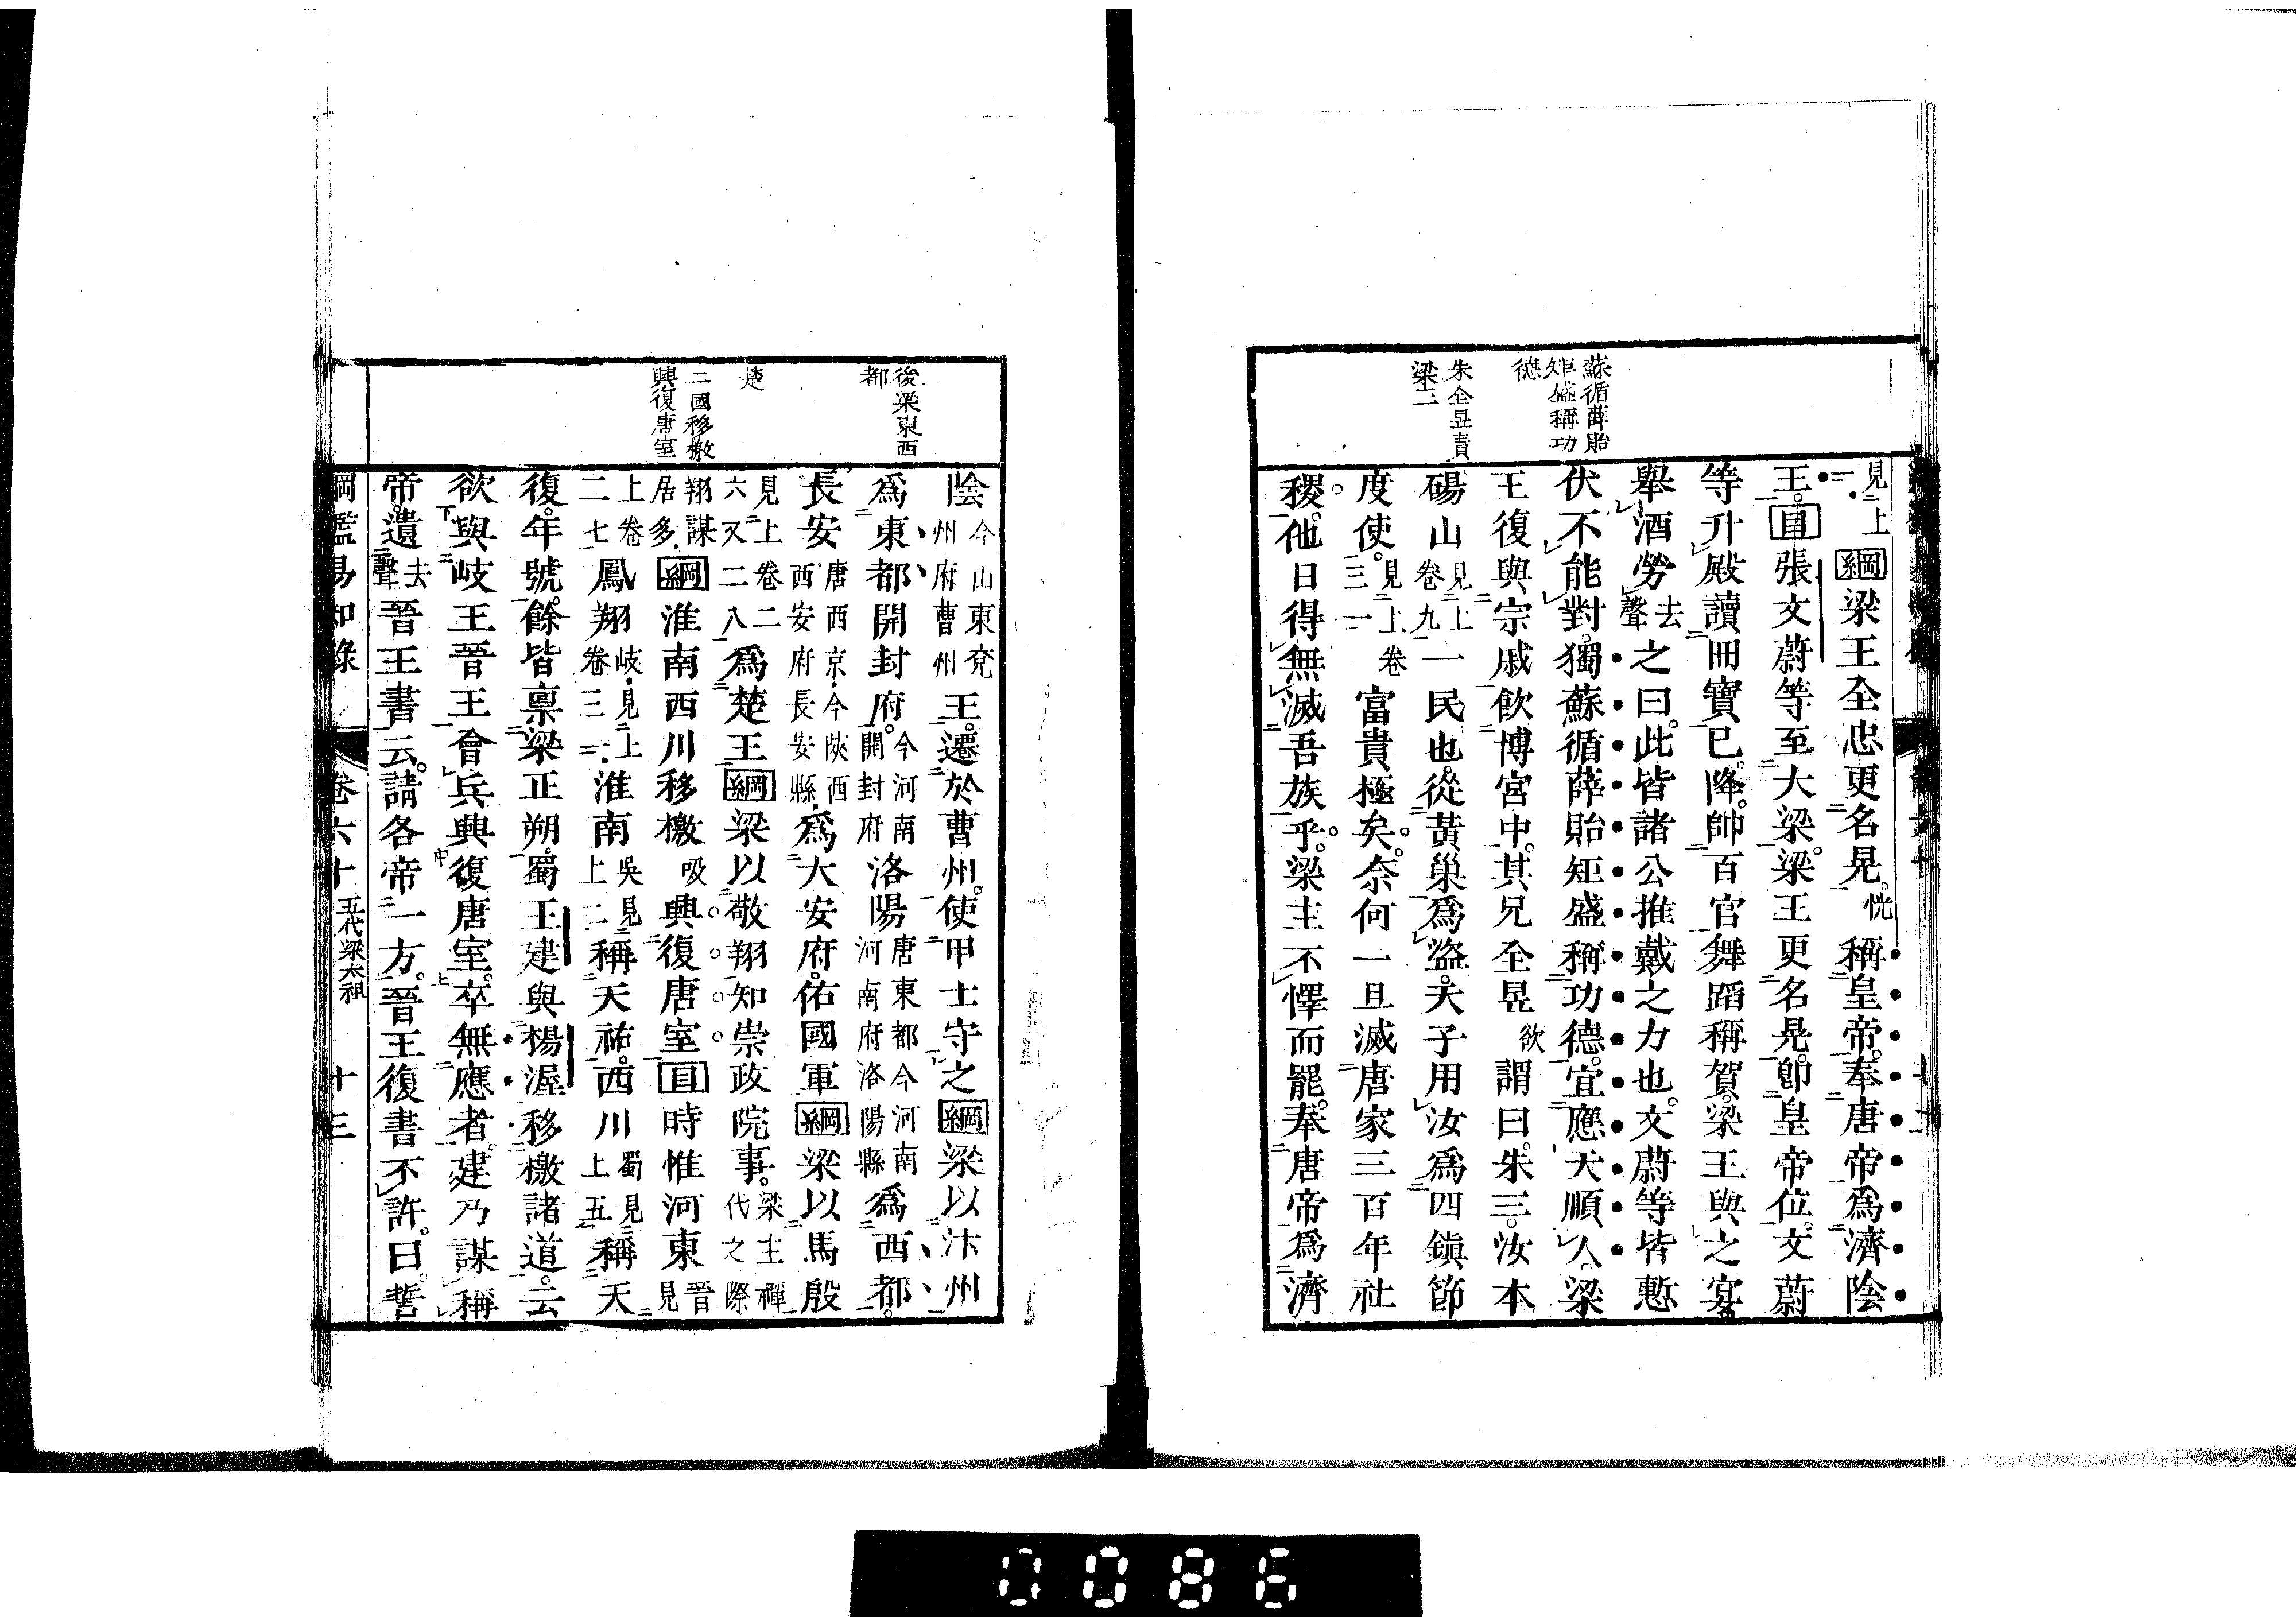 蘇循薛貽
矩盛稱功
德
朱全昱責
梁王
見上
一
綱梁王全忠更名晃恍稱皇帝奉唐帝爲濟陰
王目張文蔚等至大梁梁王更名晃卽皇帝位文蔚
等升殿讀冊寶已降帥百官舞蹈稱賀梁王與之宴
舉酒勞去聲之曰此皆諸公推戴之力也文蔚等皆慙
伏不能對獨蘇循薛貽矩盛稱功德宜應天順人梁
王復與宗戚飲博宮中其兄全昱欲謂曰朱三汝本
碭山見上卷九一民也從黃巢爲盜天子用汝爲四鎭節
度使見上卷三一富貴極矣奈何一旦滅唐家三百年社
稷他日得無滅吾族乎梁主不懌而罷奉唐帝爲濟
後梁東西
都
楚
二國移檄
興復唐室
陰今山東兗州府曹州王遷於曹州使甲士守之綱梁以汴州
爲東都開封府今河南開封府洛陽唐東都今河南河南府洛陽縣爲西都
長安唐西京今陝西西安府長安縣爲大安府佑國軍綱梁以馬殷
見上卷二六又二八爲楚王綱梁以敬翔知崇政院事梁主禪代之際
翔謀居多綱淮南西川移檄吸興復唐室目時惟河東晉見
上卷二七鳳翔岐見上卷三一淮南吳見上二稱天祐西川蜀見上五稱天
復年號餘皆稟梁正朔蜀王建與楊渥移檄諸道云
欲與岐王晉王會兵興復唐室卒無應者建乃謀稱
帝遺去聲晉王書云請各帝一方晉王復書不許曰誓
綱鑑易知錄 卷六十 五代梁太祖 十三
0086